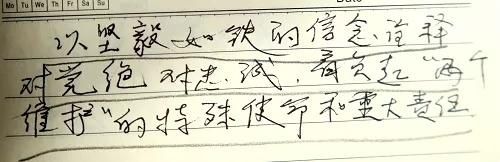 Mo Tu We Th Fr Sa Su
Date
以坚毅如铁的信念诠释
对党绝对忠诚，肩负起“两个
维护”的特殊使命和重大责任